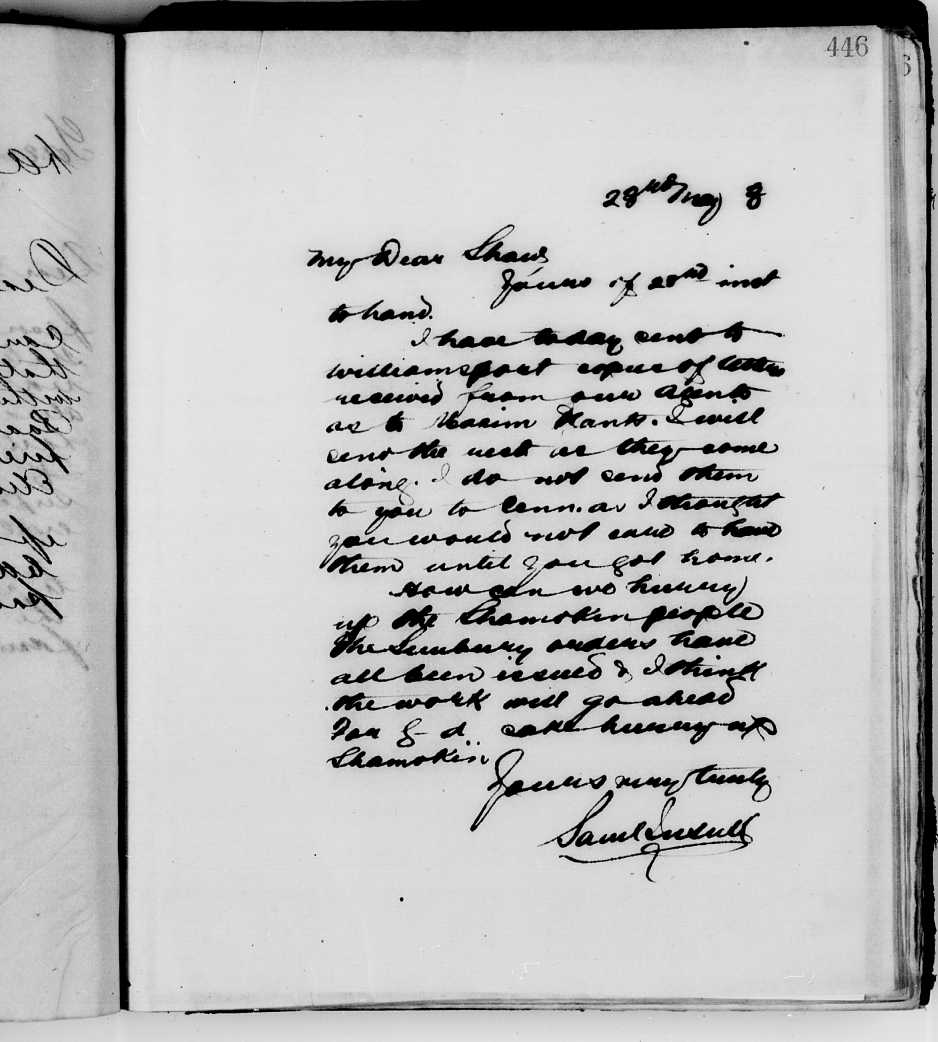 446
28th May 3
My Dear Shaw
Yours of 28nd inst
to hand.
I have today sent to
Williamsport copies of letters
received from our Agents
as to Maxim Plants. I will
send the rest as they come
along. I do not send them
to you to Cenn. as I thought
you would not care to have
them until you got home.
How can we hurry
up the Shamokin people
The Sunbury orders have
all been issued & I think
the work will go ahead
For G- d sake hurry up
Shamokin
Yours very truly
Saml Insull